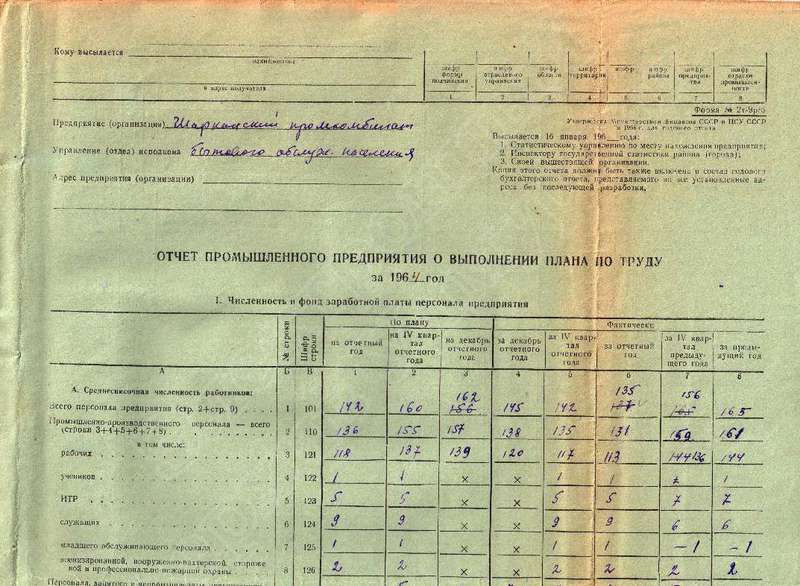 Кому высылается
наименование
и адрес получателя
шифр формы шифр отраслевого управления шифр области шифр территории шифр шифр района шифр предприятия шифр отрасли промышленности
1 2 3 4 5 6 7 8
Форма № 2т-9р/о
Утверждена Министерством финансов СССР и ЦСУ СССР
Предприятие (организация) Шарканский промкомбинат
Высылается 16 января 196 года:
1. Статистическому управлению по месту нахождения предприятия;
Управление (отдел) исполкома бытового обслуж. населения
2. Инспектору государственной статистики района (города);
3. Своей вышестоящей организации.
Адрес предприятия (организации)
Копия этого отчета должна быть также включена в состав годового
бухгалтерского отчета, представляемого во все установленные ад-
реса без последующей разработки.
ОТЧЕТ ПРОМЫШЛЕННОГО ПРЕДПРИЯТИЯ О ВЫПОЛНЕНИИ ПЛАНА ПО ТРУДУ
за 1964 год
I. Численность и фонд заработной платы персонала предприятия
№ строки Шифр строки По плану Фактически
на отчетный год на IV квартал отчетного года на декабрь отчетного года за декабрь отчетного года за IV квартал отчетного года за отчетный год за IV квартал предыдущего года за предыдущий год
А Б В 1 2 3 4 5 6 7 8
А. Среднесписочная численность работников:
162 135 156
Всего персонала предприятия (стр. 2+стр. 9) 1 101 142 160 156 145 142 137 165
Промышленно-производственного персонала — всего
(строки 3+4+5+6+7+8) 2 110 136 155 157 138 135 131 159 161
в том числе:
рабочих 3 121 118 137 139 120 117 113 144 136 144
учеников 4 122 1 1 × × 1 1 1
ИТР 5 123 5 5 × × 5 5 7 7
служащих 6 124 9 9 × × 9 9 6 6
младшего обслуживающего персонала 7 125 1 1 × × 1 1 – 1 – 1
военизированной, вооруженно-вахтерской, стороже-
вой и профессионально-пожарной охраны 8 126 2 2 × × 2 2 2 2